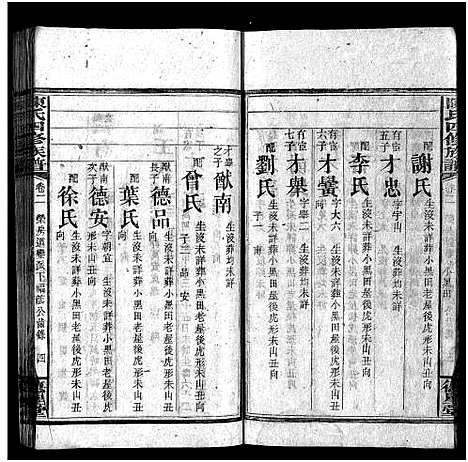 陳氏四修族譜
卷二
配
謝氏
生沒未詳葬小黑田老屋後虎形未山丑向
有宦五子
才忠
字學山 生沒葬均未詳
配
李氏
生沒未詳葬小黑田老屋後虎形未山丑向
有宦六子
才蠻
字大六 生沒葬均未詳
有宦七子
才舉
字舉二 生沒葬均未詳
配
劉氏
生沒未詳葬小黑田老屋後虎形未山丑向
子一 南
才舉之子
猷南
生沒葬均未詳
配
曾氏
生沒未詳葬小黑田老屋後虎形未山丑向
子二 品 安
猷南長子
德品
生沒未詳葬小黑田老屋後虎形未山丑向
配
葉氏
生沒未詳葬小黑田老屋後虎形未山丑向
猷南次子
德安
字朝宜 生沒未詳葬小黑田老屋後虎形未山丑向
配
徐氏
生沒未詳葬小黑田老屋後虎形未山丑向
陳氏四修族譜
卷二
四